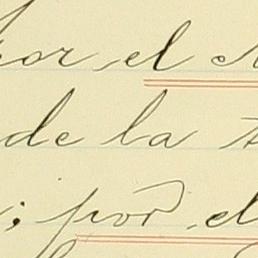 por el
de la
; por el